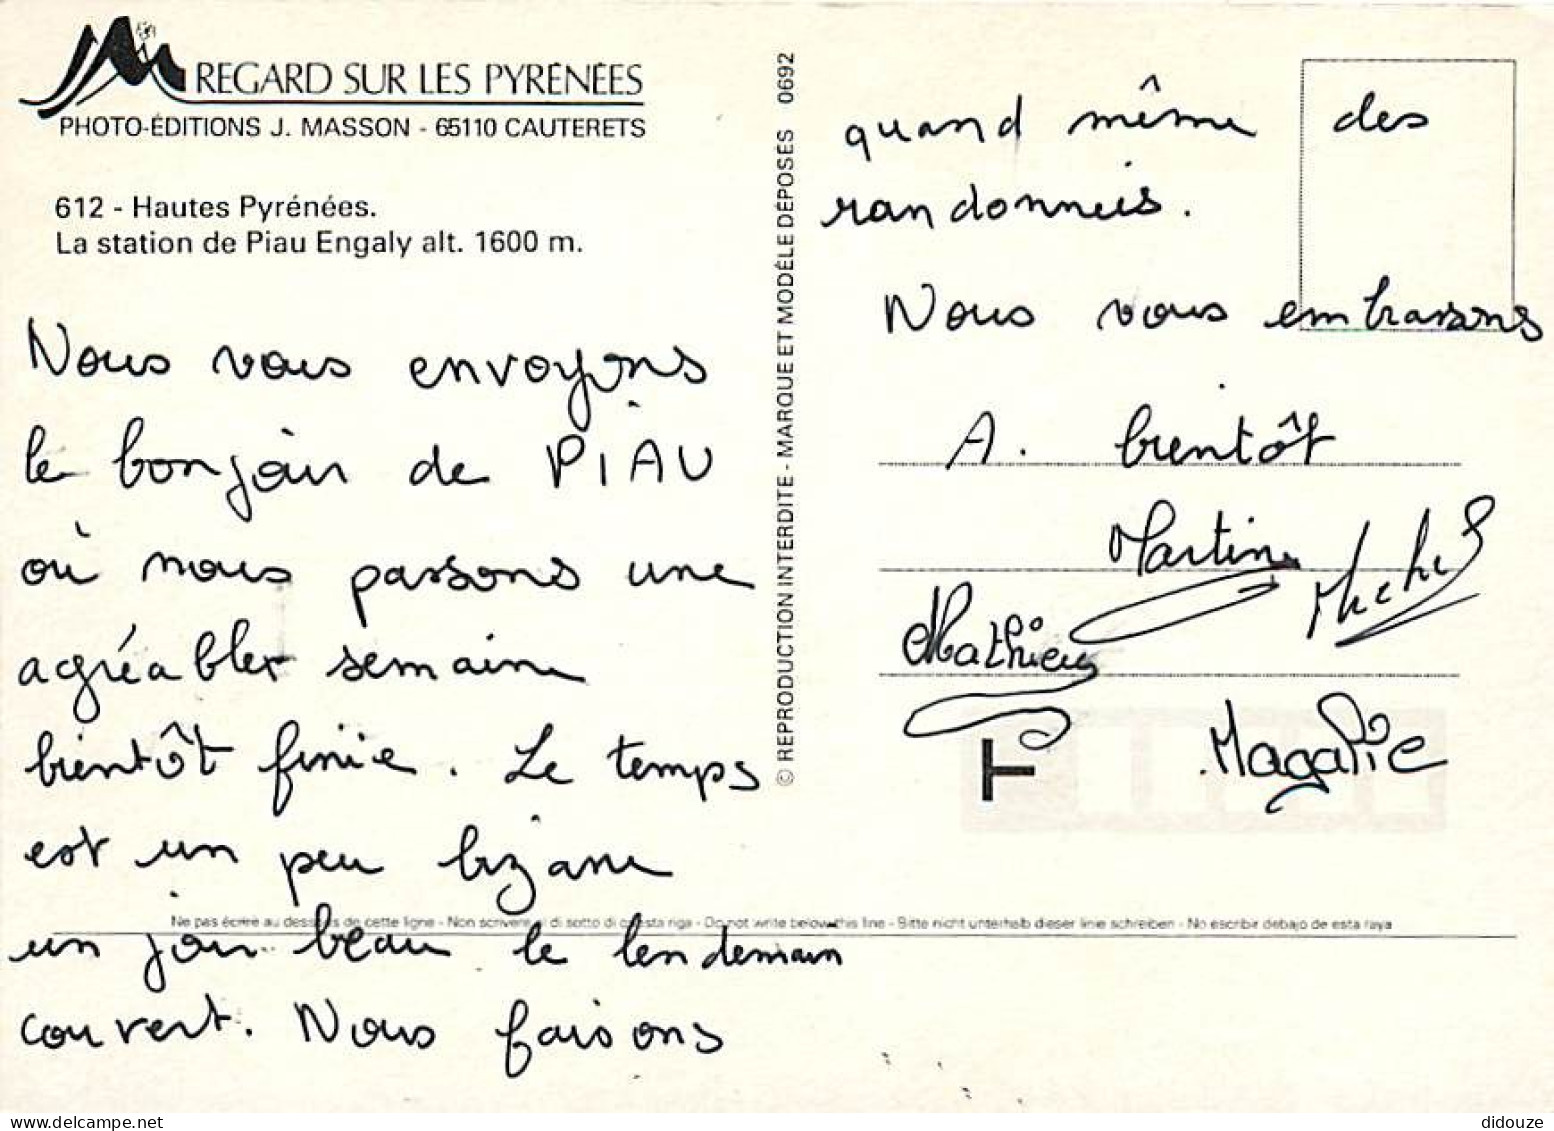 REGARD SUR LES PYRÉNÉES
PHOTO-ÉDITIONS J. MASSON - 65110 CAUTERETS
612 - Hautes Pyrénées.
La station de Piau Engaly alt. 1600 m.
Nous vous envoyons
le bonjour de PIAU
où nous passons une
agréable semaine
bientôt finie. Le temps
est un peu bizarre
un jour beau le lendemain
couvert. Nous faisons
© REPRODUCTION INTERDITE - MARQUE ET MODÈLE DÉPOSÉS 0692
quand même des
randonnées.
Nous vous embrassons
A. bientôt
Martine
Michel
Mathieu
Magalie
T
Ne pas écrire au dessous de cette ligne - Non scrivere al di sotto di questa riga - Do not write below this line - Bitte nicht unterhalb dieser linie schreiben - No escribir debajo de esta raya
didouze